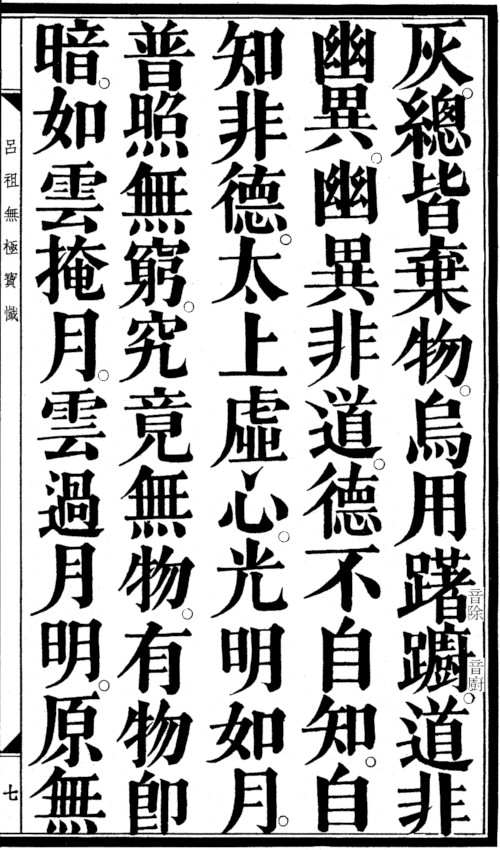 灰。總皆棄物。烏用躇音除躕音廚。道非
幽異。幽異非道。德不自知。自
知非德。太上虛心。光明如月。
普照無窮。究竟無物。有物即
暗。如雲掩月。雲過月明。原無
呂祖無極寶懺
七